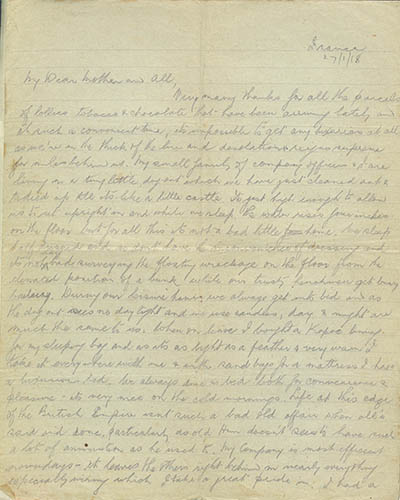 France
27/1/18
My Dear Mother and All,
Very many thanks for all the parcels
of lollies tobacco & chocolate that have been arriving lately and
at such a convenient time, its impossible to get any luxuries at all
as we're in the thick of the line and desolation & reigns supreme
for miles behind us. My small family of company officers & I are
living in a tiny little dug out which we have just cleaned out &
tidied up till its like a little castle. Its just high enough to allow
us to sit upright in and while we sleep the water rises four inches
on the floor but for all this its not a bad little home. We sleep
and
its not bad surveying the floating wreckage on the floor from the
elevated position of a bunk while our trusty henchmen get busy
bailing. During our leisure hours we always get into bed and as
the dug out sees no daylight and we use candles, day & night are
much the same to us. When on leave I bought a Kapoc lining
for my sleeping bag and as its as light as a feather & very warm I
take it everywhere with me & with sand bags for a mattress I have
a luxurious bed. We always dine in bed both for convenience &
pleasure - its very nice on the cold mornings. Life at this edge
of the British Empire isnt such a bad old affair when all's
said and done, particularly as old Hun doesn't seem to have such
a lot of ammunition as he used to. My Company is most efficient
nowadays - it leaves the others right behind in nearly everything
especially wiring which I take a great pride in. I had a